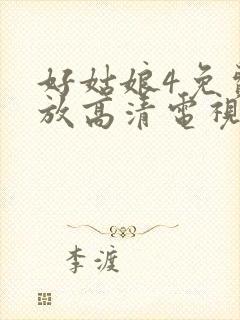 好姑娘4免
放高清電視
李渡